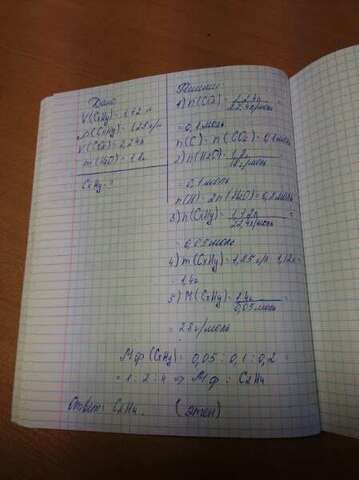 Дано
V(CxHy) = 1,12 л
ρ(CxHy) = 1,25 г/л
V(CO2) = 2,24 л
m(H2O) = 1,8 г
CxHy - ?
Решение
1) n(CO2) = 2,24л / 22,4 л/моль
= 0,1 моль
n(C) = n(CO2) = 0,1 моль
2) n(H2O) = 1,8г / 18 г/моль =
= 0,1 моль
n(H) = 2n(H2O) = 0,2 моль
3) n(CxHy) = 1,12л / 22,4 л/моль =
= 0,05 моль
4) m(CxHy) = 1,25 г/л · 1,12 л =
= 1,4 г
5) M(CxHy) = 1,4г / 0,05 моль
= 28 г/моль
Мф (CxHy) = 0,05 : 0,1 : 0,2 =
= 1 : 2 : 4 ⇒ Мф : C2H4
Ответ: C2H4. (этен)